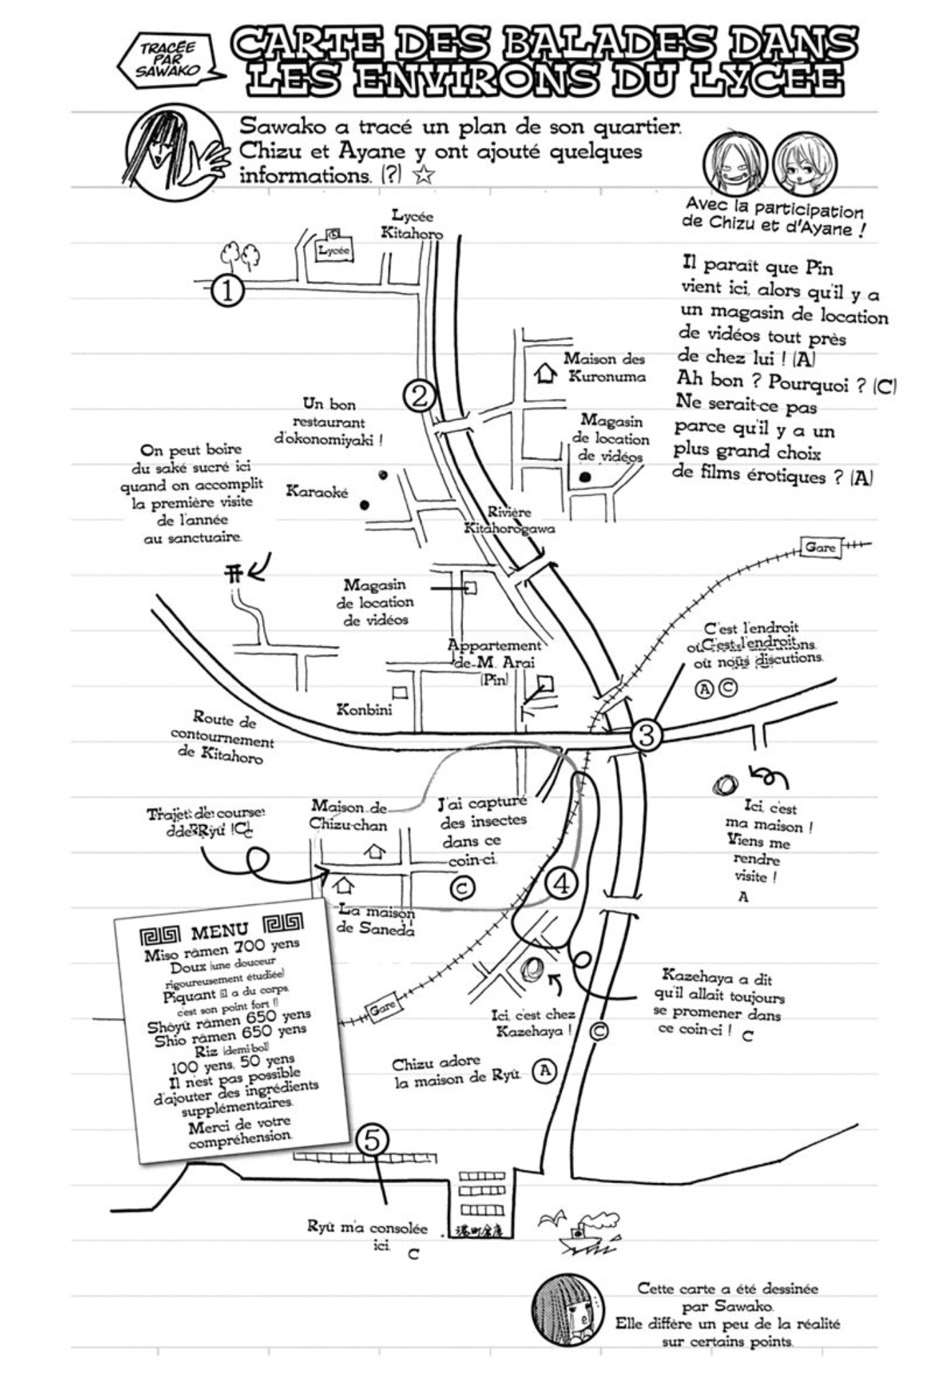 TRACÉE
PAR
SAWAKO
CARTE DES BALADES DANS
LES ENVIRONS DU LYCÉE
Sawako a tracé un plan de son quartier.
Chizu et Ayane y ont ajouté quelques
informations. (?) ☆
Avec la participation
de Chizu et d'Ayane !
Lycée
Kitahoro
Lycée
1
Il paraît que Pin
vient ici, alors qu'il y a
un magasin de location
de vidéos tout près
de chez lui ! (A)
Ah bon ? Pourquoi ? (C)
Ne serait-ce pas
parce qu'il y a un
plus grand choix
de films érotiques ? (A)
2
Maison des
Kuronuma
Un bon
restaurant
d'okonomiyaki !
Magasin
de location
de vidéos
On peut boire
du saké sucré ici
quand on accomplit
la première visite
de l'année
au sanctuaire.
Karaoké
Rivière
Kitahorogawa
Gare
Magasin
de location
de vidéos
Appartement
de M. Arai
(Pin)
C'est l'endroit
où nous discutions.
A C
Konbini
Route de
contournement
de Kitahoro
3
Trajet de course
de Ryû ! C
Maison de
Chizu-chan
J'ai capturé
des insectes
dans ce
coin-ci.
C
Ici, c'est
ma maison !
Viens me
rendre
visite !
A
4
La maison
de Saneda
MENU
Miso râmen 700 yens
Doux (une douceur
rigoureusement étudiée)
Piquant (il a du corps,
c'est son point fort !)
Shôyû râmen 650 yens
Shio râmen 650 yens
Riz (demi bol)
100 yens, 50 yens
Il n'est pas possible
d'ajouter des ingrédients
supplémentaires.
Merci de votre
compréhension.
Gare
Ici, c'est chez
Kazehaya !
Kazehaya a dit
qu'il allait toujours
se promener dans
ce coin-ci ! C
C
Chizu adore
la maison de Ryû. A
5
Ryû m'a consolée
ici. C
港町倉庫
Cette carte a été dessinée
par Sawako.
Elle diffère un peu de la réalité
sur certains points.